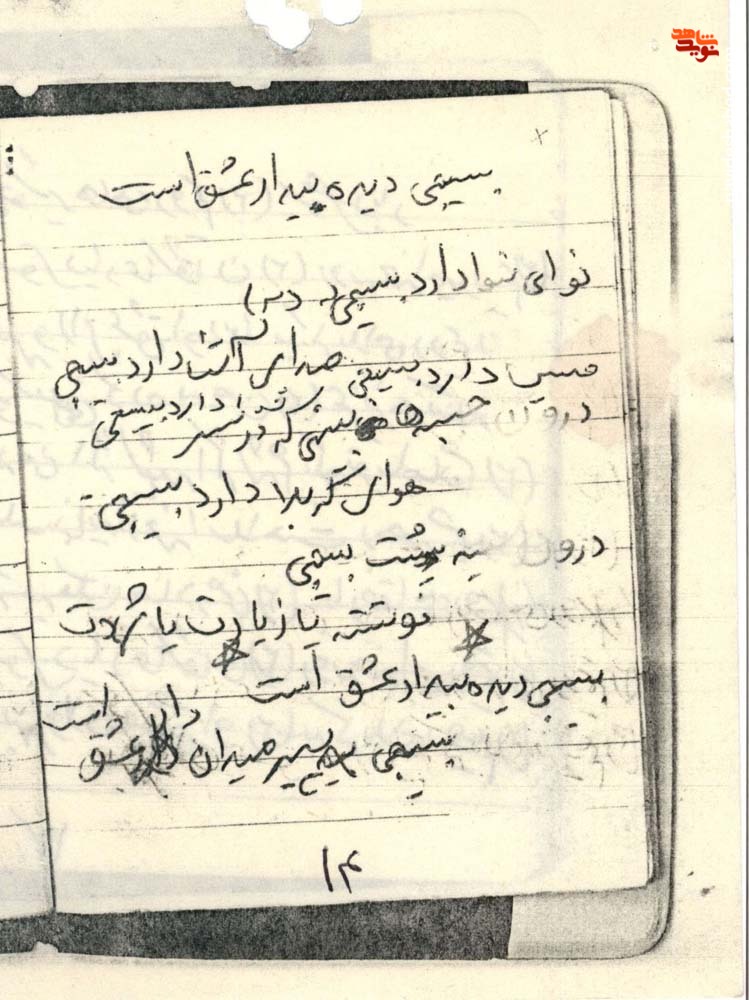 نوید شاهد
بسیجی دیده بیدار عشق است
نوای نینوا دارد بسیجی
صدای آشنا دارد بسیجی
دارد بسیجی
درون جبهه ها
که در سر
دارد بسیجی
هوای کربلا دارد بسیجی
درون سینه بسیجی
نوشته یا زیارت یا شهادت
بسیجی دیده بیدار عشق است
بسیجی پیر میدان دار عشق است
۱۴